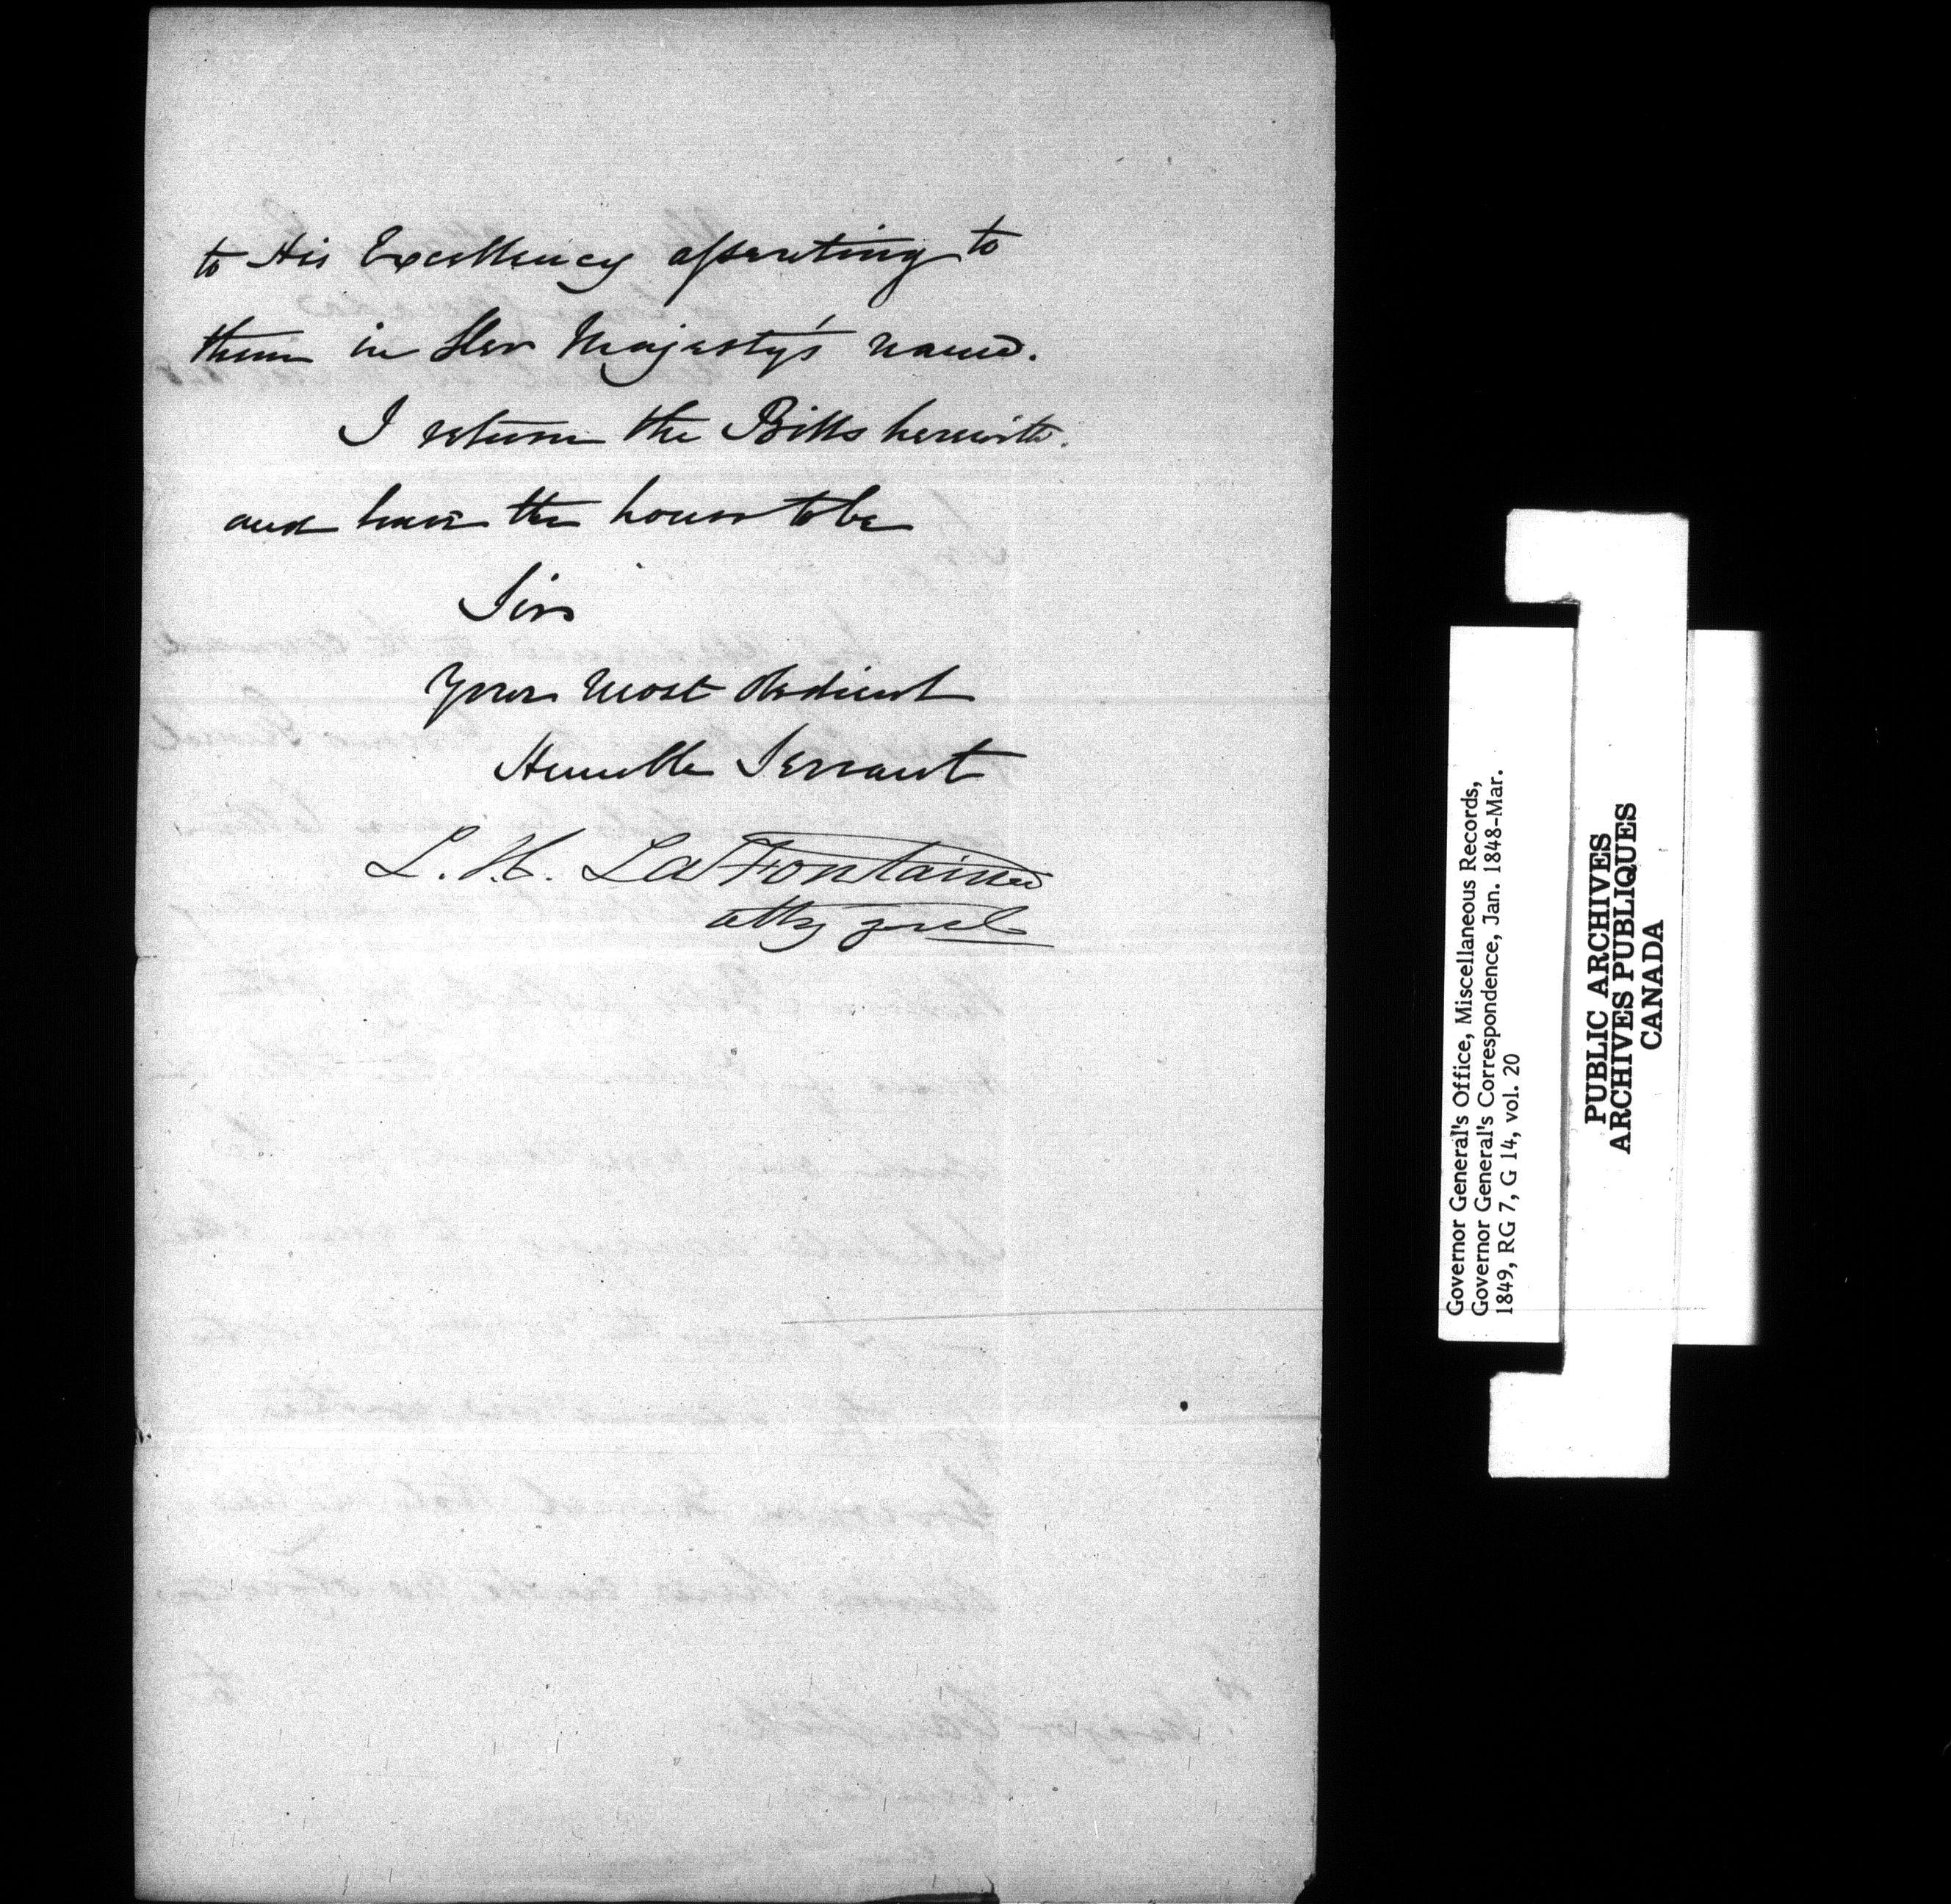 to His Excellency assenting to
them in Her Majesty's name.
I return the Bills herewith.
and have the honor to be
Sir
Your most obedient
Humble Servant
L. H. LaFontaine
atty genl
Governor General's Office, Miscellaneous Records,
Governor General's Correspondence, Jan. 1848-Mar.
1849, RG 7, G 14, vol. 20
PUBLIC ARCHIVES
ARCHIVES PUBLIQUES
CANADA